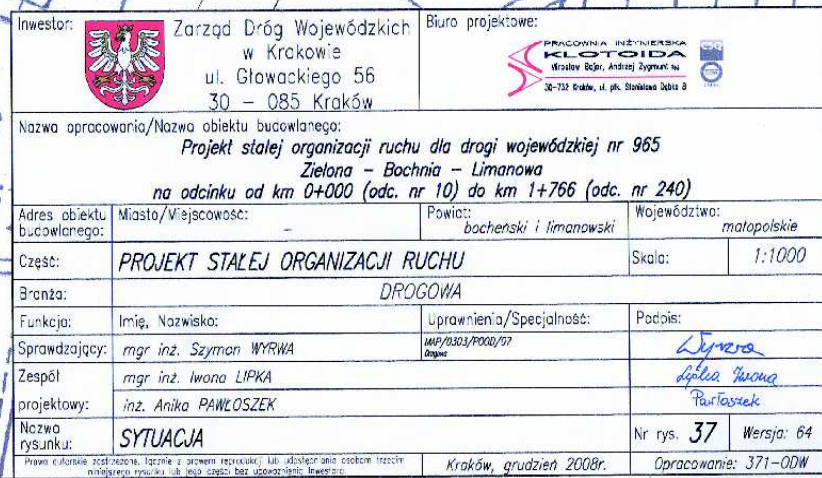 Inwestor:
Zarząd Dróg Wojewódzkich
w Krakowie
ul. Głowackiego 56
30 - 085 Kraków
Biuro projektowe:
PRACOWNIA INŻYNIERSKA
KLOTOIDA
Mirosław Bajor, Andrzej Zygmunt
30-732 Kraków, ul. płk. Stanisława Dąbka 8
Nazwa opracowania/Nazwa obiektu budowlanego:
Projekt stałej organizacji ruchu dla drogi wojewódzkiej nr 965
Zielona - Bochnia - Limanowa
na odcinku od km 0+000 (odc. nr 10) do km 1+766 (odc. nr 240)
Adres obiektu budowlanego: Miasto/Miejscowość: - Powiat: bocheński i limanowski Województwo: małopolskie
Część: PROJEKT STAŁEJ ORGANIZACJI RUCHU Skala: 1:1000
Branża: DROGOWA
Funkcja: Imię, Nazwisko: Uprawnienia/Specjalność: Podpis:
Sprawdzający: mgr inż. Szymon WYRWA MAP/0303/POOD/07 Drogowa Wyrwa
Zespół mgr inż. Iwona LIPKA Lipka Iwona
projektowy: inż. Anika PAWŁOSZEK Pawłoszek
Nazwa rysunku: SYTUACJA Nr rys. 37 Wersja: 64
Prawa autorskie zastrzeżone, łącznie z prawem reprodukcji lub udostępniania osobom trzecim
niniejszego rysunku lub jego części bez upoważnienia Inwestora.
Kraków, grudzień 2008r. Opracowanie: 371-ODW